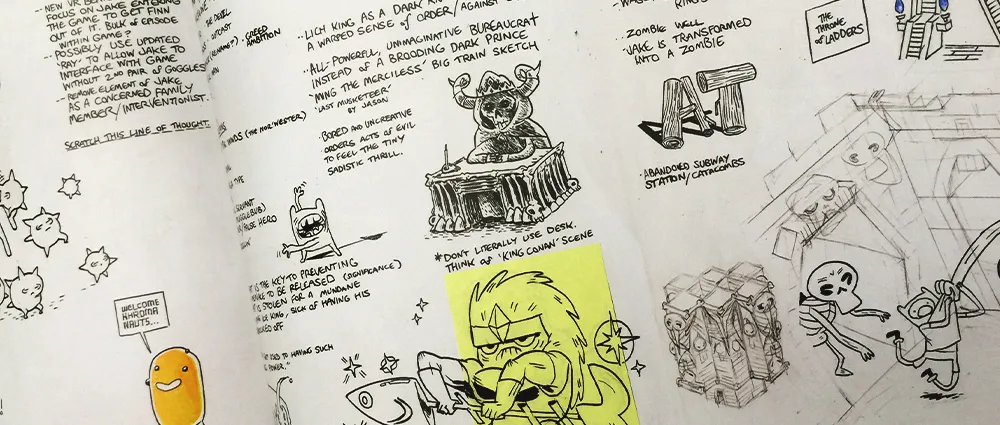 -- NEW VR
FOCUS ON JAKE ENTERING
THE GAME TO GET FINN
OUT OF IT. BULK OF EPISODE
WITHIN GAME?
-- POSSIBLY USE UPDATED
'RAY' TO ALLOW JAKE TO
INTERFACE WITH GAME
WITHOUT 2ND PAIR OF GOGGLES
-- REMOVE ELEMENT OF JAKE
AS A CONCERNED FAMILY
MEMBER/INTERVENTIONIST.
SCRATCH THIS LINE OF THOUGHT.
WELCOME
KHROMA
NAUTS...
GREED
AMBITION
WINDS (THE NOR'WESTER)
TYPE
SERVANT
FALSE HERO
-- LICH KING AS A DARK
A WARPED SENSE OF ORDER/AGAINST
-- ALL-POWERFUL, UNIMAGINATIVE BUREAUCRAT
INSTEAD OF A BROODING DARK PRINCE
- 'MING THE MERCILESS' BIG TRAIN SKETCH
- 'LAST MUSKETEER'
BY JASON
- BORED AND UNCREATIVE
ORDERS ACTS OF EVIL
TO FEEL THE TINY
SADISTIC THRILL.
* DON'T LITERALLY USE DESK.
THINK OF 'KING CONAN' SCENE
IS THE KEY TO PREVENTING
TO BE RELEASED (SIGNIFICANCE)
IS STOLEN FOR A MUNDANE
KING, SICK OF HAVING HIS
OFF
TO HAVING SUCH
POWER."
- ZOMBIE WELL
- JAKE IS TRANSFORMED
INTO A ZOMBIE
AT
- ABANDONED SUBWAY
STATION/CATACOMBS
THE
THRONE
OF
LADDERS